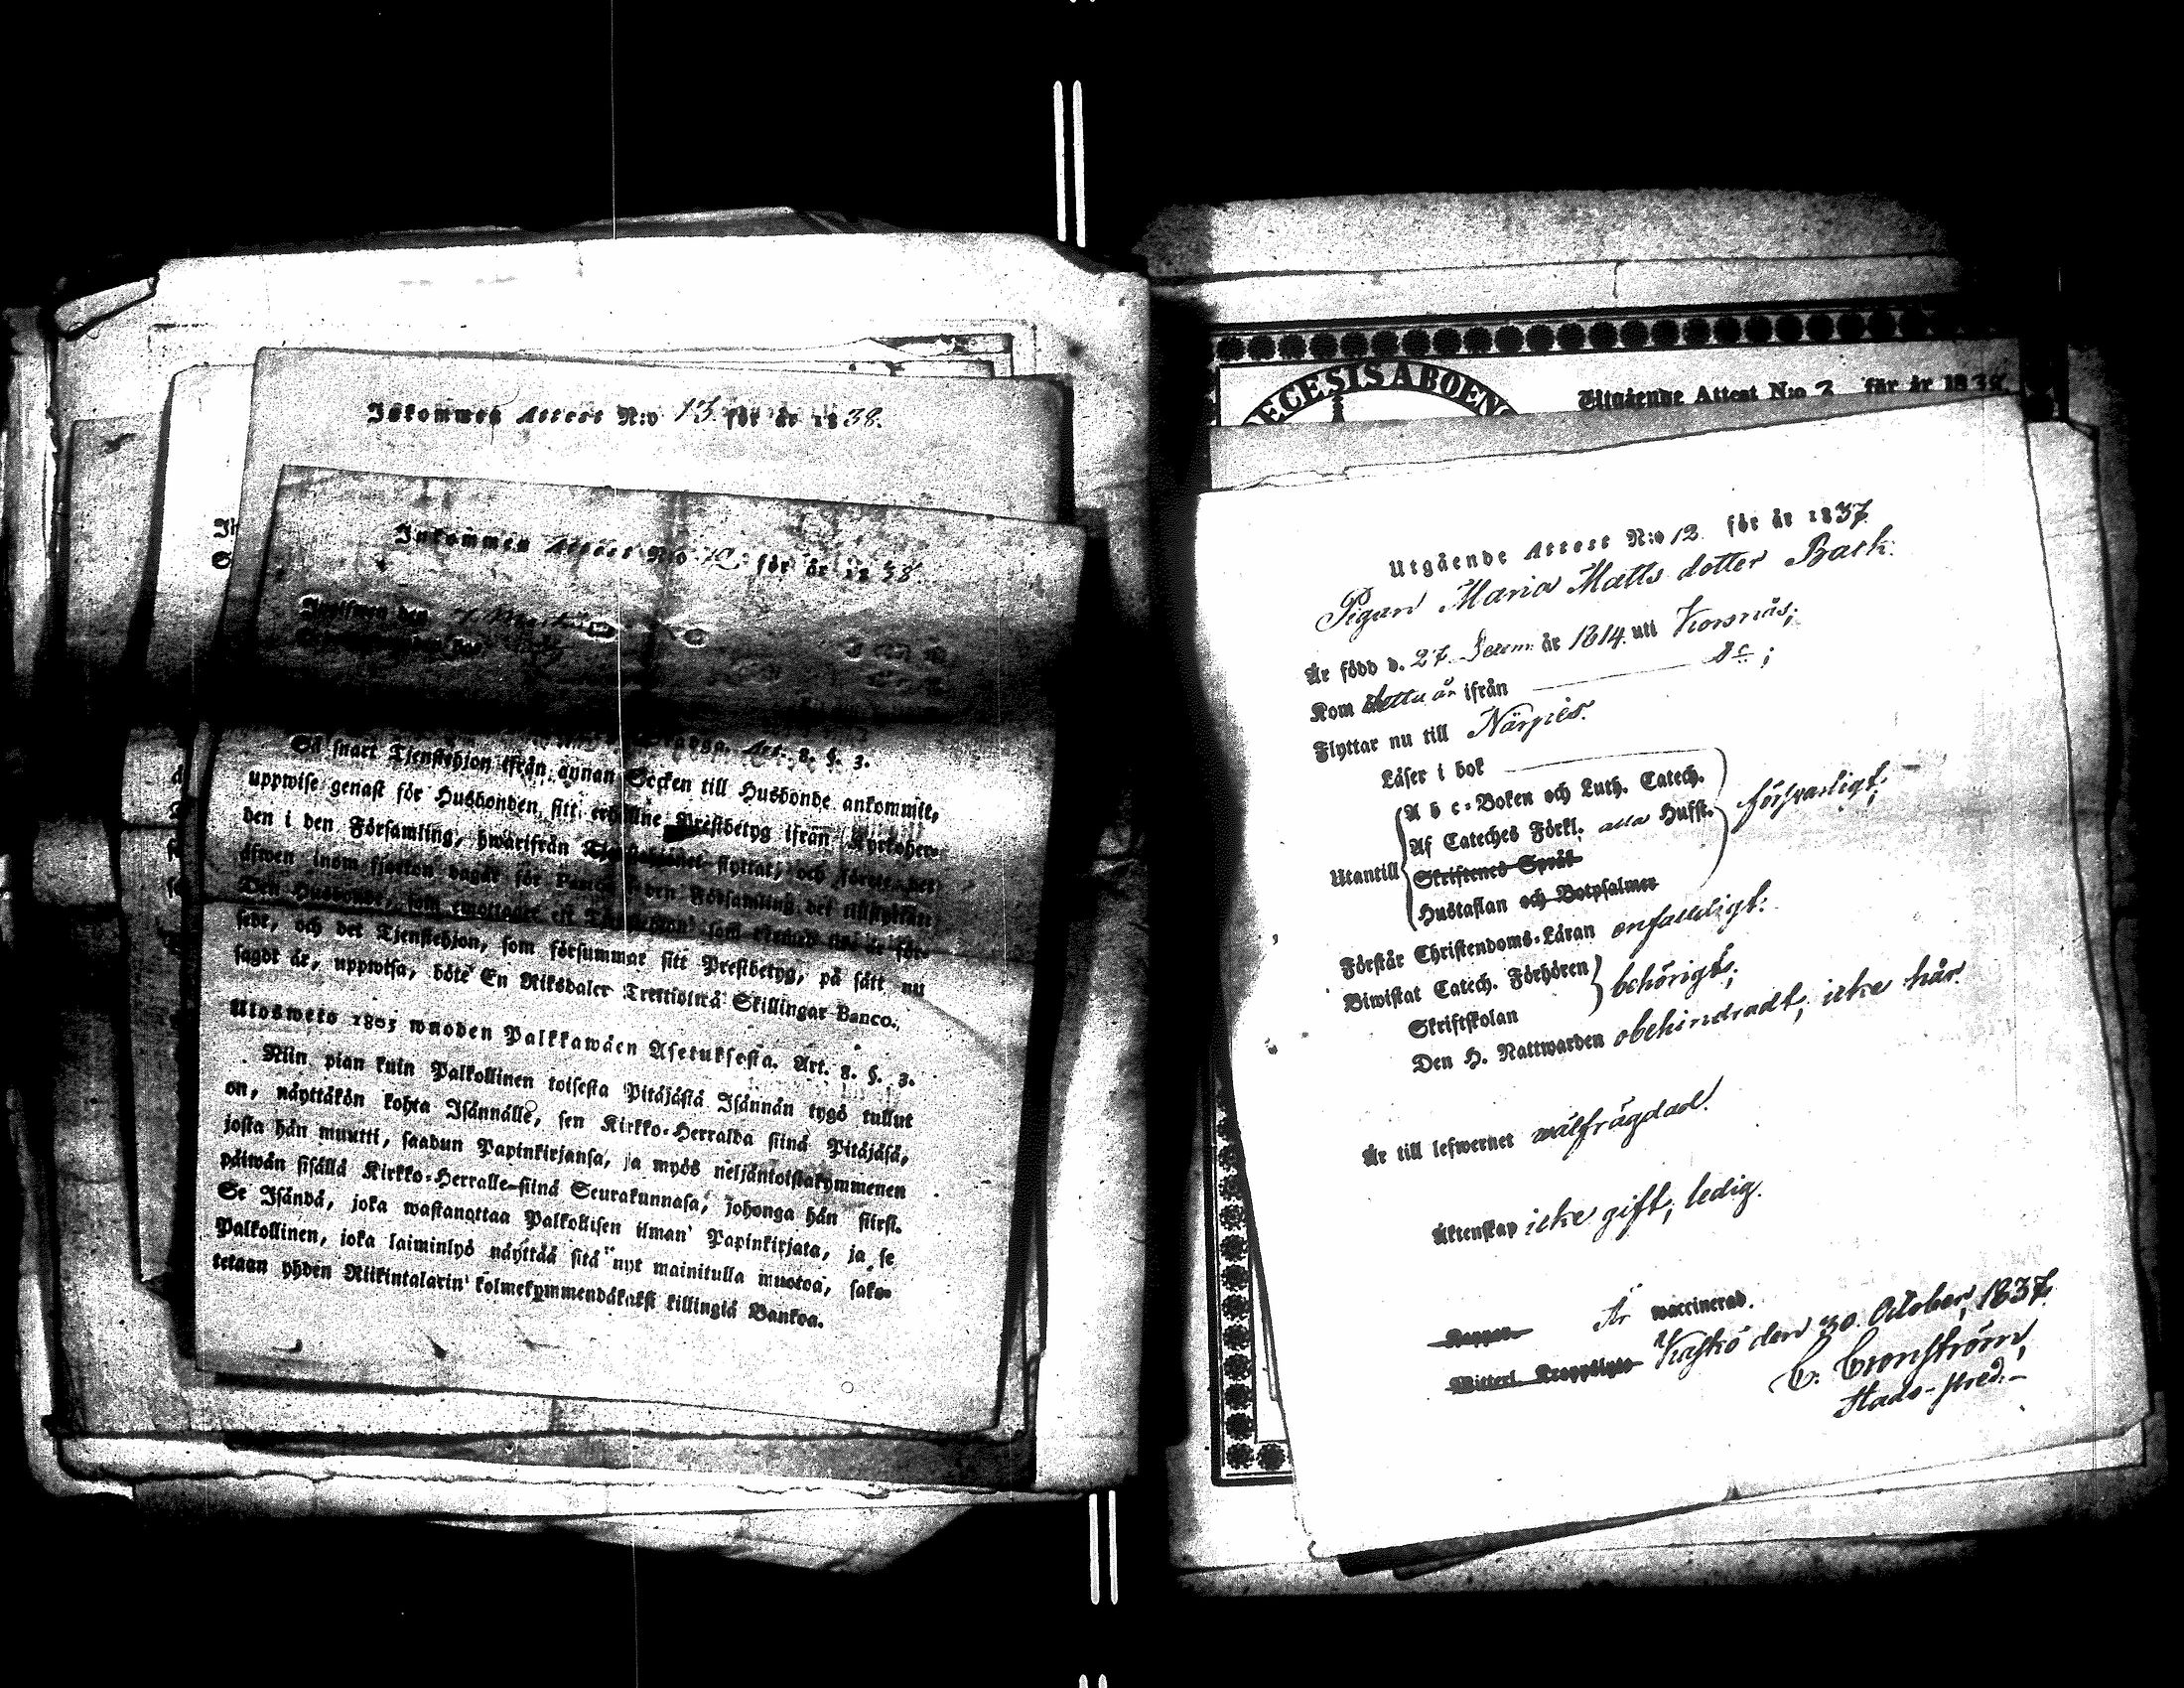 Inkommen Attest N:o 13. för år 1838.
Inkommen Attest N:o 12 för år 1838.
Uppwisen den 7 Martii
Art. 8. §. 3.
Så snart Tjenstehjon ifrån annan Socken till Husbonde ankommit,
uppwise genast för Husbonden sitt erhållne Prestbetyg ifrån Kyrkoher-
den i den Församling, hwarifrån Tjenstehjonet flyttat, och förete det
äfwen inom fjorton dagar för Pastor i den Församling det tillflyttar;
Den Husbonde, som emottager ett Tjenstehjon
sedt, och det Tjenstehjon, som försummar sitt Prestbetyg, på sätt nu
sagdt är, uppwisa, böte En Riksdaler Trettiotwå Skillingar Banco.
Ulosweto 1805 wuoden Palkkawäen Asetuksesta. Art. 8. §. 3.
Niin pian kuin Palkollinen toisesta Pitäjästä Isännän tygö tullut
on, näyttäkön kohta Isännälle, sen Kirkko-Herralda siinä Pitäjäsä,
josta hän muutti, saadun Papinkirjansa, ja myös neljäntoistakymmenen
päiwän sisällä Kirkko-Herralle siinä Seurakunnasa, johonga hän siirsi.
Se Isändä, joka wastanottaa Palkollisen ilman Papinkirjata, ja se
Palkollinen, joka laiminlyö näyttää sitä nyt mainitulla muotoa, sako-
tetaan yhden Riikintalarin kolmekymmendäkaksi killingiä Bankoa.
ECESIS ABOEN
Utgående Attest N:o 2 för år 1838.
Utgående Attest N:o 12. för år 1837.
Pigan Maria Matts dotter Back.
Är född d. 27 Decem. år 1814 uti Korsnäs;
Kom detta år ifrån do;
Flyttar nu till Närpes.
Läser i bok
Utantill
A b c-Boken och Luth. Catech.
Af Cateches Förkl. alla Hufst.
Skriftenes Språk
Hustaflan och Botpsalmer
försvarligt;
Förstår Christendoms-Läran enfaldigt:
Biwistat Catech. Förhören
Skriftskolan
behörigt;
Den H. Nattwarden obehindradt, icke här.
Är till lefwernet wälfrägdad.
Äktenskap icke gift, ledig.
Koppor Är waccinerad.
Witterl. Kroppslyte Kaskö den 30 October, 1837.
C. Cronström,
Stads-pred.